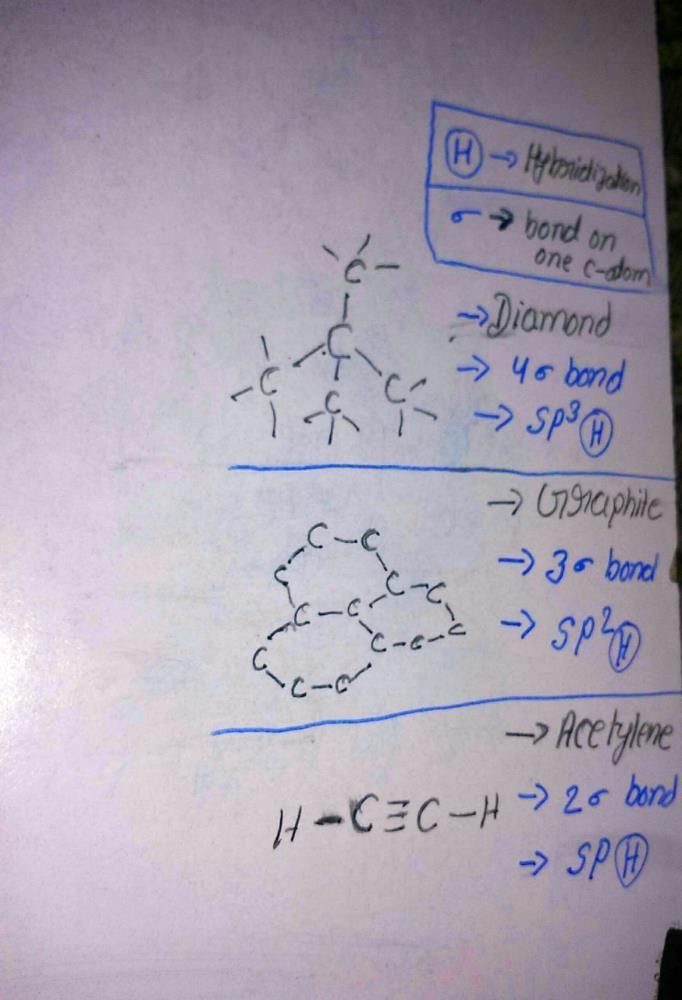 Ⓗ → Hybridization
σ → bond on
one c-atom
→ Diamond
→ 4σ bond
→ SP³ Ⓗ
→ Graphite
→ 3σ bond
→ SP² Ⓗ
→ Acetylene
H-C≡C-H → 2σ bond
→ SP Ⓗ